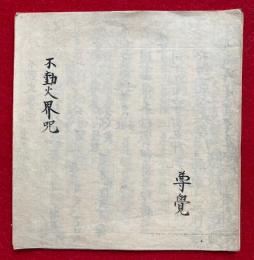 不動火界呪
尊覺